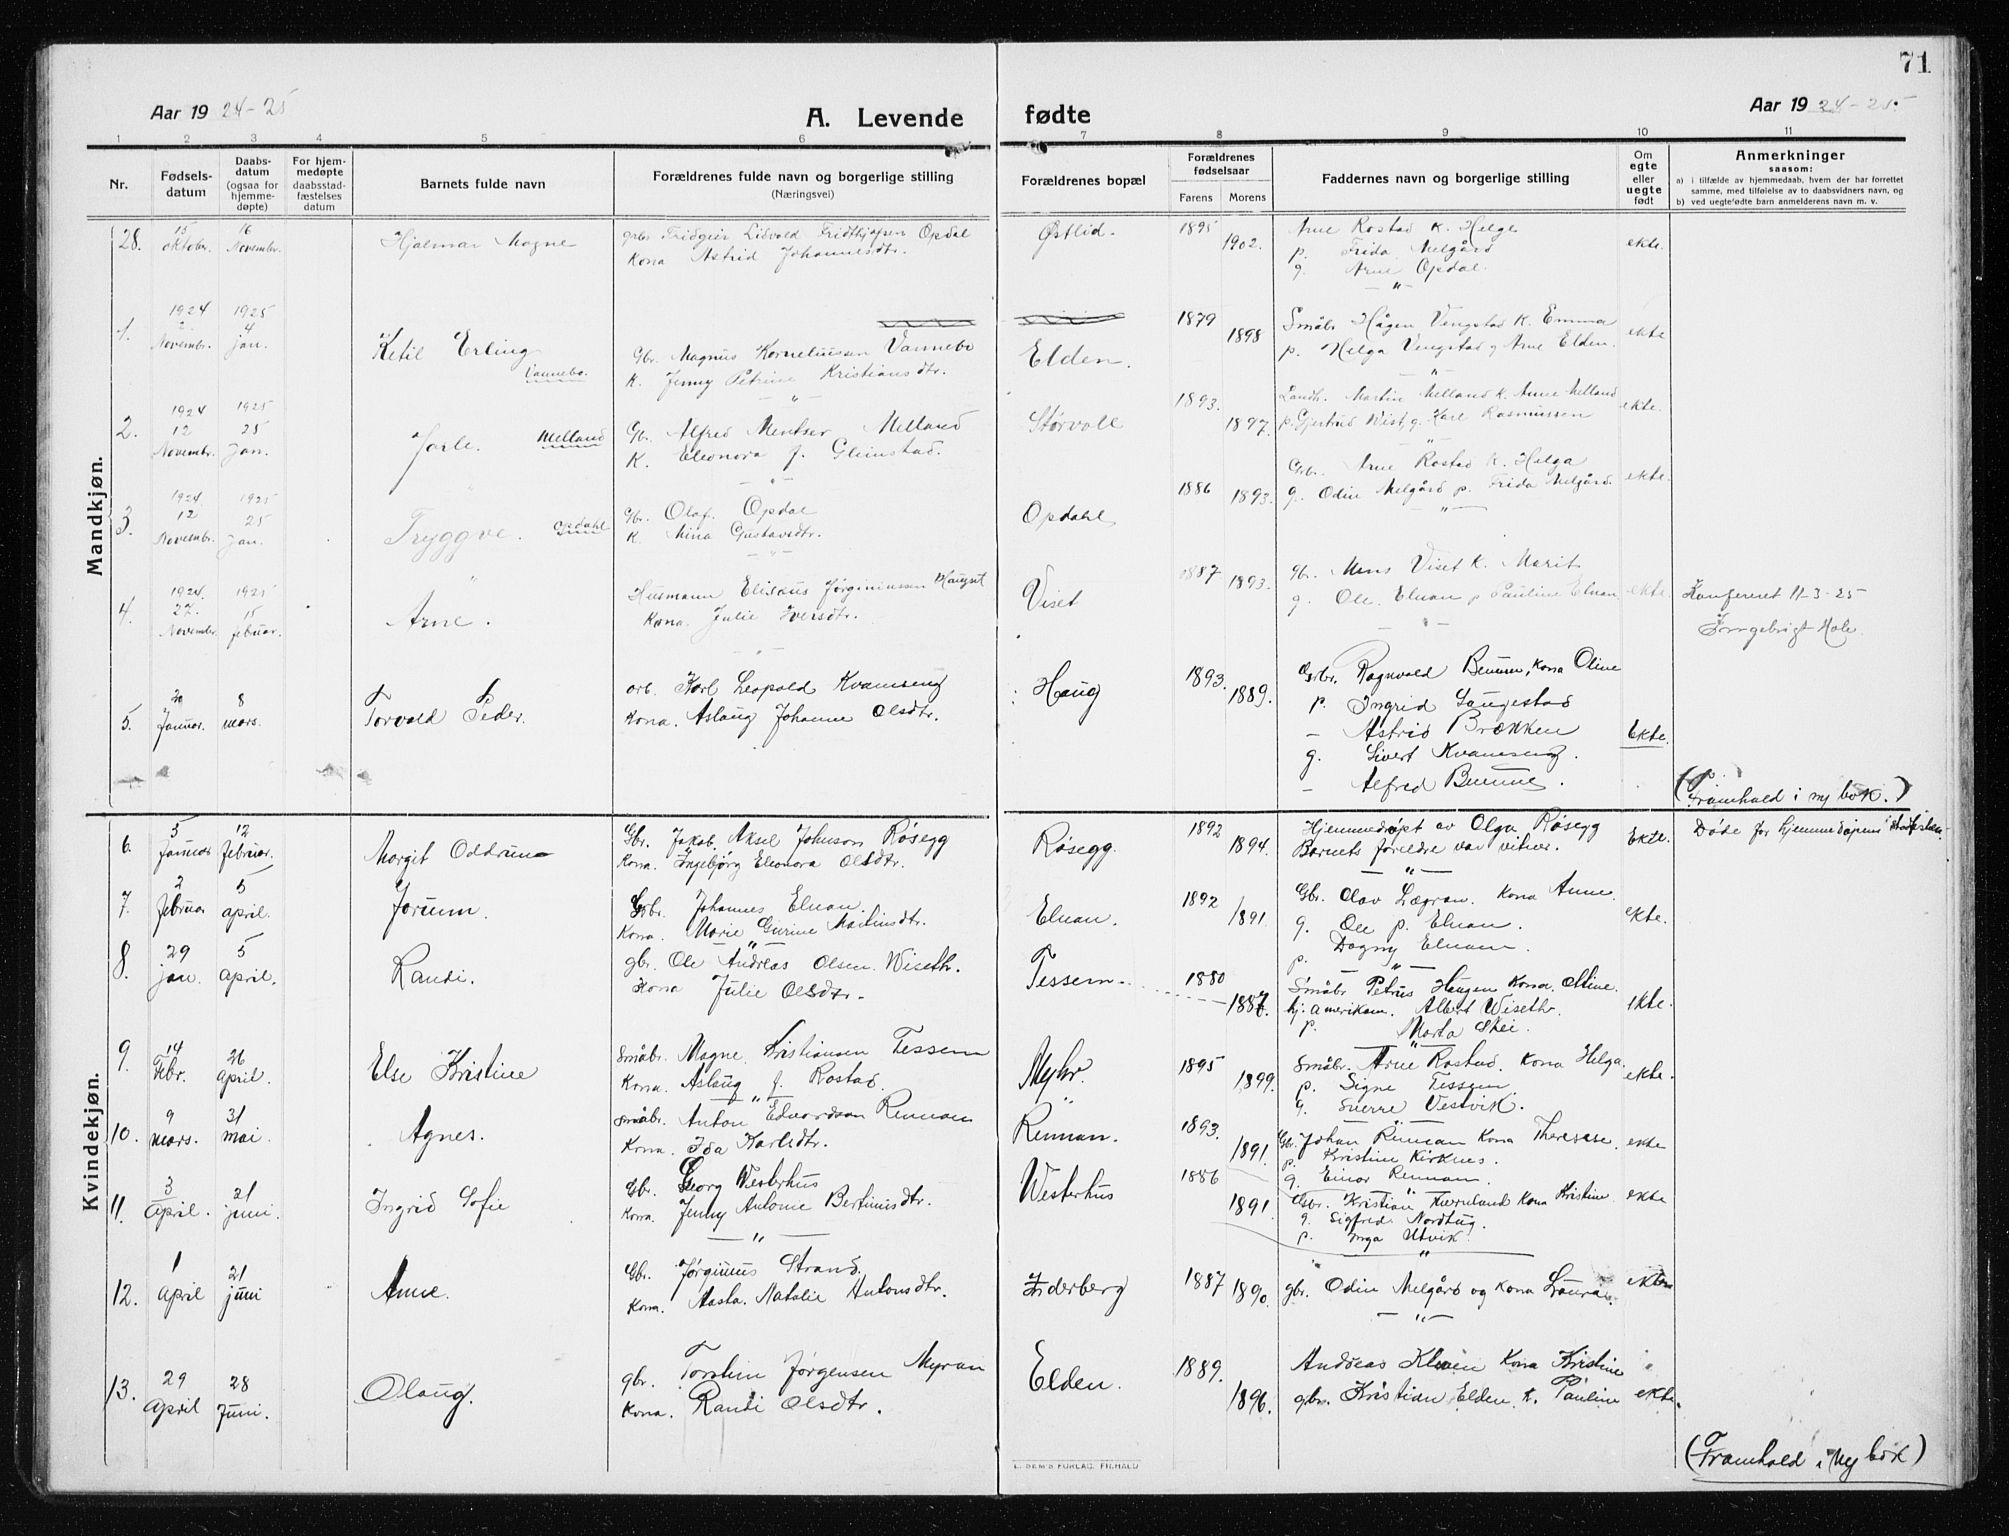 71
Aar 1924-25
A. Levende fødte
Aar 1924-25
1 2 3 4 5 6 7 8 9 10 11
Nr.
Fødselsdatum
Daabsdatum (ogsaa for hjemmedøpte)
For hjemmedøpte daabsstadfæstelses datum
Barnets fulde navn
Forældrenes fulde navn og borgerlige stilling (Næringsvei)
Forældrenes bopæl
Forældrenes fødselsaar
Farens Morens
Faddernes navn og borgerlige stilling
Om egte eller uegte født
Anmerkninger
saasom:
a) i tilfælde av hjemmedaab, hvem der har forrettet samme, med tilføielse av to daabsvidners navn, og
b) ved uegtefødte barn anmelderens navn m. v.
Mandkjøn.
28. 15 oktober. 16 November. Hjalmar Magne
Lidvald Fridthjofsen Opdal
Kona Astrid Johannesdtr.
Østlid. 1895 1902.
Arne Rostad K. Helga
p. Frida Melgård
g. Arne Opdal.
ekte.
1. 1924 2. Novembr. 1925 4 Jan. Ketil Erling Vannebo.
Gbr. Magnus Korneliussen Vannebo
K. Jenny Petrine Kristiansdtr.
Elden. 1879 1898
Småbr. Hågen Vengstad K. Emma
p. Helga Vengstad g Arne Elden.
ekte
2. 1924 12 Novembr. 1925 25 Jan. Jarle. Melland
Gb. Alfred Mentser Melland
K. Eleonora f. Glimstad.
Størvoll 1893. 1897.
Landh. Martin Melland K. Anne Melland
p. Gjertrud Wist, g. Karl Rasmussen
ekte.
3. 1924 12 Novembr. 1925 25 Jan. Tryggve. Opdahl
Gb. Olaf Opdal
K. Mina Gustavsdtr.
Opdahl 1886 1893.
Gbr. Arne Rostad K. Helga
g. Odin Melgård p. Frida Melgård.
ekte.
4. 1924. 27. November. 1925 15 februar. Arne.
Husmann Elisæus Jørginussen Haugset
Kona. Julie Iversdtr.
Viset 1887 1893.
gb. Mons Viset K. Marit
g. Ole. Elnan p Pauline Elnan
ekte.
Konfereret 11-3-25
Ingebrigt Hole.
5. 20 Januar. 8 mars. Torvald Peder.
arb. Karl Leopold Kvamseng
Kona. Aslaug Johanne Olsdtr.
Haug 1893. 1889.
Gbr. Ragnvald Bennen, Kona Oline
p. Ingrid Laugestad
- Astrid Brækken
g. Sivert Kvamseng.
- Alfred
Ekte.
(Framhald i ny bok.)
Kvindekjøn.
6. 5 Januar 12 Februar. Margit Oddrun
Gbr. Jakob Aksel Johnson Røsegg
Kona. Ingebjørg Eleonora Olsdtr.
Røsegg. 1892 1894.
Hjemmedøpt av Olga Røsegg
Barnets foreldre var vitner.
Ekte.
Døde før hjemmedåpens stadfesteln-
7. 2 februar 5 april. Jorunn.
Gbr. Johannes Elnan.
Kona. Marie Gurine Martinsdtr.
Elnan. 1892 1891
Gbr. Olav Lægran. Kona Anne.
g. Ole p. Elnan.
p. Dagny Elnan.
ekte.
8. 29 jan. 5 April. Randi.
gbr. Ole Andreas Olsen. Wiseth.
Kona Julie Olsdtr.
Tessem. 1880 1887.
Småbr Petrus Haugen Kona. Oline.
hj. amerikan. Albert Wiseth.
p. Marta Skei.
ekte.
9. 14 Febr. 26 April. Else Kristine
Småbr. Magne Kristiansen Tessem
Kona. Aslaug f. Rostad.
Myhr. 1895 1899.
Småbr. Arne Rostad. Kona Helga.
p. Signe Tessem
g. Sverre Vestvik.
ekte.
10. 9 mars. 31 mai. Agnes.
Småbr. Anton Edvardsen Rennan
Kona. Ida Karlsdtr.
Rennan. 1893. 1891.
Gb. Johan Rennan Kona Therese.
p. Kristine Kirknes.
g. Einar Rennan.
ekte
11. 3 April. 21 juni. Ingrid Sofie
Gbr. Georg Westerhus
Kona. Jenny Antonie Bertinusdtr.
Westerhus 1886 1891.
Gbr. Kristian Kona Kristine
g. Sigfred Nordtug.
p. Inga Utvik.
ekte
12. 1 April 21 juni Anne.
Gbr. Jørginus Strand.
Kona. Aasta. Natalie Antonsdtr.
Inderberg 1887 1890.
gbr. Odin Melgård og Kona Laura.
ekte
13. 29 April 28 Juni. Olaug.
gbr. Torstein Jørgensen Myran
Kona. Randi Olsdtr.
Elden. 1889. 1896.
Andreas Kleven Kona Kristine
gbr. Kristian Elden. K. Pauline
ekte.
(Framhald i ny bok)
E. SEM'S FORLAG, FR.HALD